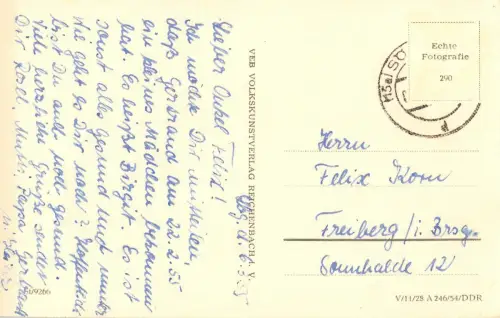 Lieber Onkel Felix!
Ich möchte Dir mitteilen,
daß Gertraud am 20.2.55
ein kleines Mädchen bekommen
hat. Es heißt Birgit. Es ist
sonst alles gesund und munter
Wie geht es Dir noch? Hoffentlich
bist Du auch noch gesund.
Viele herzliche Grüße sendet
Dir
VEB VOLKSKUNSTVERLAG REICHENBACH i. V.
Echte
Fotografie
290
Herrn
Felix Korn
Freiberg / i. Brsg.
Sonnhalde 12
V/11/28 A 246/54/DDR